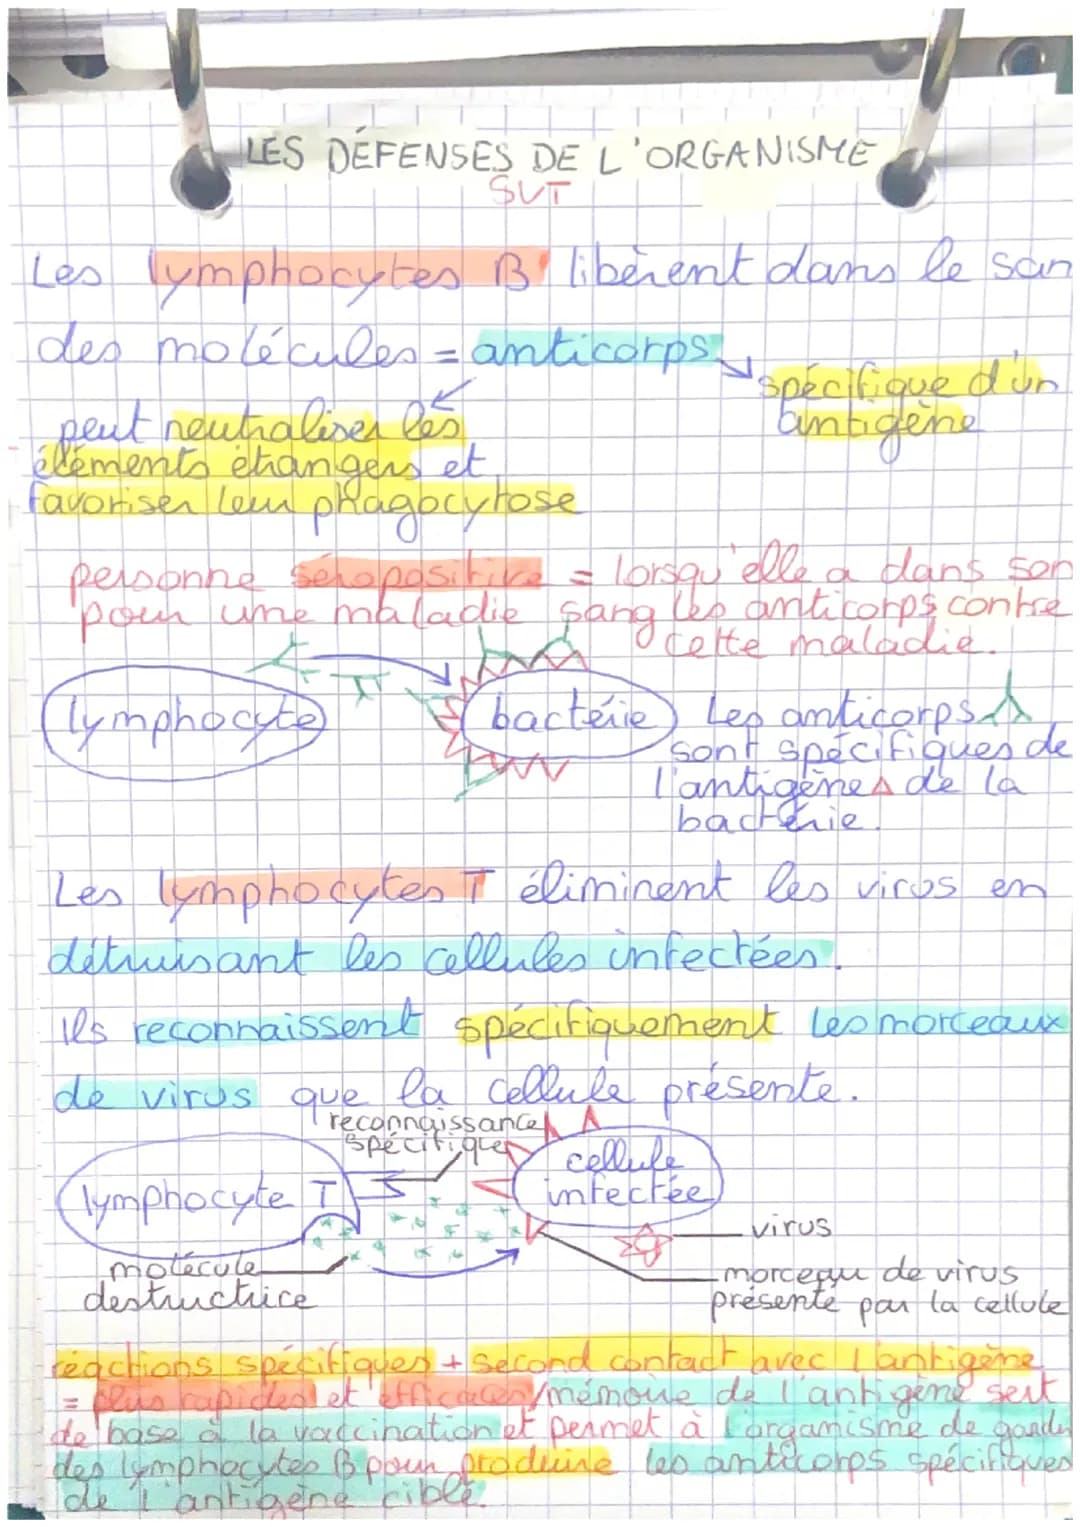 LES DÉFENSES DE L'ORGANISME
SVT
Les lymphocytes B libèrent dans le san
des molécules = anticorps
spécifique d'un
antigène
peut neutraliser les
éléments étrangers et
favoriser leur phagocytose
personne séropositive = lorsqu'elle a dans son
pour une maladie sang les anticorps contre
cette maladie.
lymphocyte
bactérie
Les anticorps
sont spécifiques de
l'antigène de la
bactérie.
Les lymphocytes T éliminent les virus en
détruisant les cellules infectées.
Ils reconnaissent spécifiquement les morceaux
de virus que la cellule présente.
reconnaissance
spécifique
lymphocyte T
cellule
infectée
virus
molécule
destructrice
morceau de virus
présenté par la cellule
réactions spécifiques + second contact avec l'antigène
= plus rapides et efficaces/mémoire de l'antigène sert
de base à la vaccination et permet à l'organisme de garder
des lymphocytes B pour produire les anticorps spécifiques
de l'antigène ciblé.